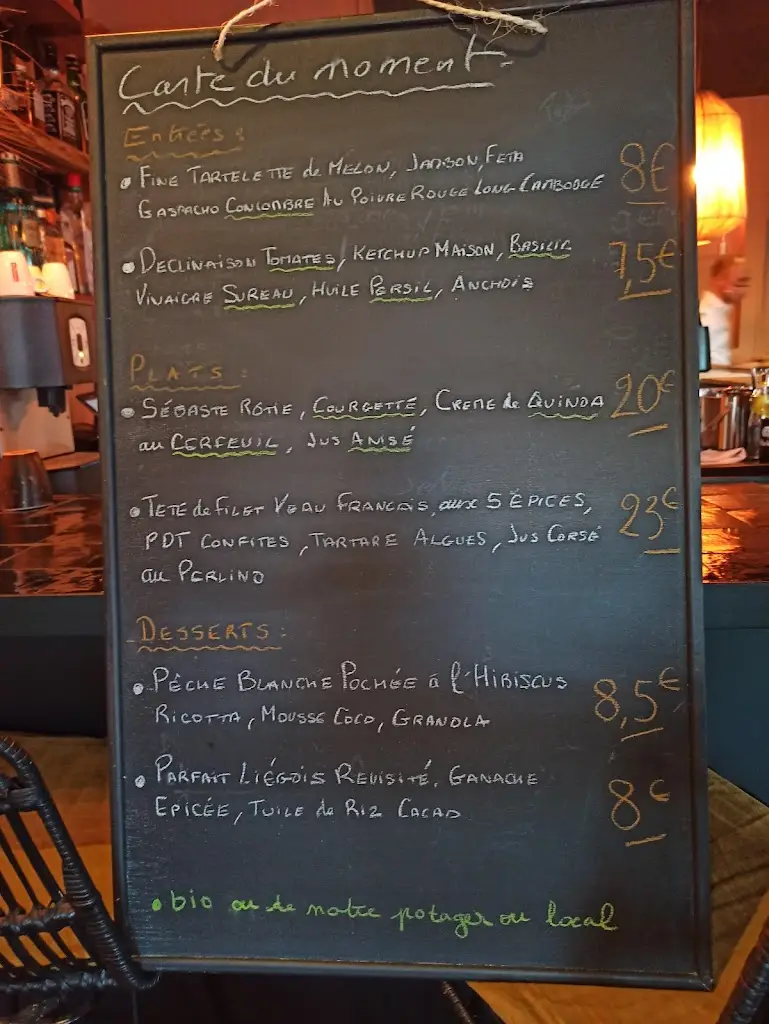 Carte du moment
Entrées :
• FINE TARTELETTE de MELON, JAMBON, FETA 8€
GASPACHO CONCOMBRE AU POIVRE ROUGE LONG CAMBODGE
• DECLINAISON TOMATES, KETCHUP MAISON, BASILIC 7,5€
VINAIGRE SUREAU, HUILE PERSIL, ANCHOIS
PLATS :
• SÉBASTE ROTIE, COURGETTE, CREME de QUINOA 20€
au CERFEUIL, JUS ANISÉ
• TETE de FILET VEAU FRANCAIS, aux 5 ÉPICES, 23€
PDT CONFITES, TARTARE ALGUES, JUS CORSÉ
au PERLINO
DESSERTS :
• PÊCHE BLANCHE POCHÉE à l'HIBISCUS 8,5€
RICOTTA, MOUSSE COCO, GRANOLA
• PARFAIT LIÉGOIS REVISITÉ, GANACHE 8€
EPICÉE, TUILE de RIZ CACAO
• bio ou de notre potager ou local